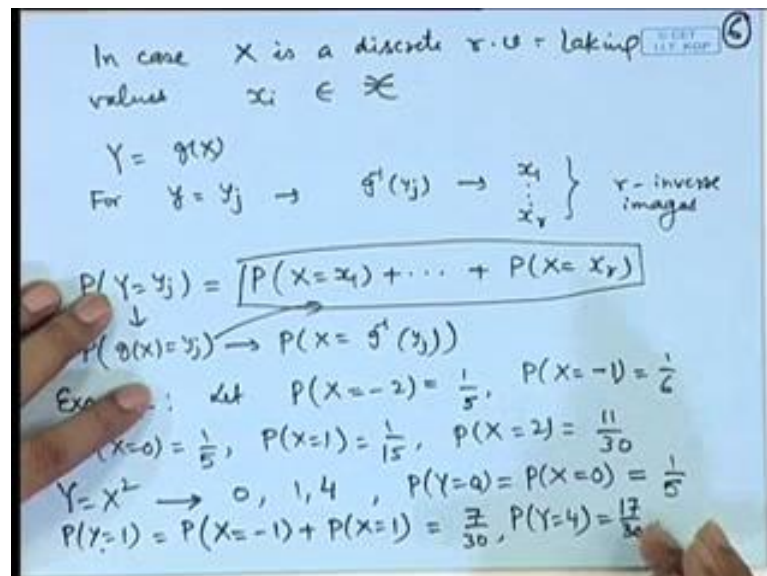 In case X is a discrete r.v. taking
© CET
I.I.T. KGP
6
values xi ∈ 𝒳
Y = g(X)
For y = yj → g⁻¹(yj) → x1 ⋮ xr } r-inverse images
P(Y=yj) = P(X=x1) + ··· + P(X=xr)
↓
P(g(X)=yj) → P(X = g⁻¹(yj))
Let P(X=-2) = 1/5, P(X=-1) = 1/6
(X=0) = 1/5, P(X=1) = 1/15, P(X=2) = 11/30
Y=X² → 0, 1, 4, P(Y=0) = P(X=0) = 1/5
P(Y=1) = P(X=-1) + P(X=1) = 7/30, P(Y=4) = 17/30